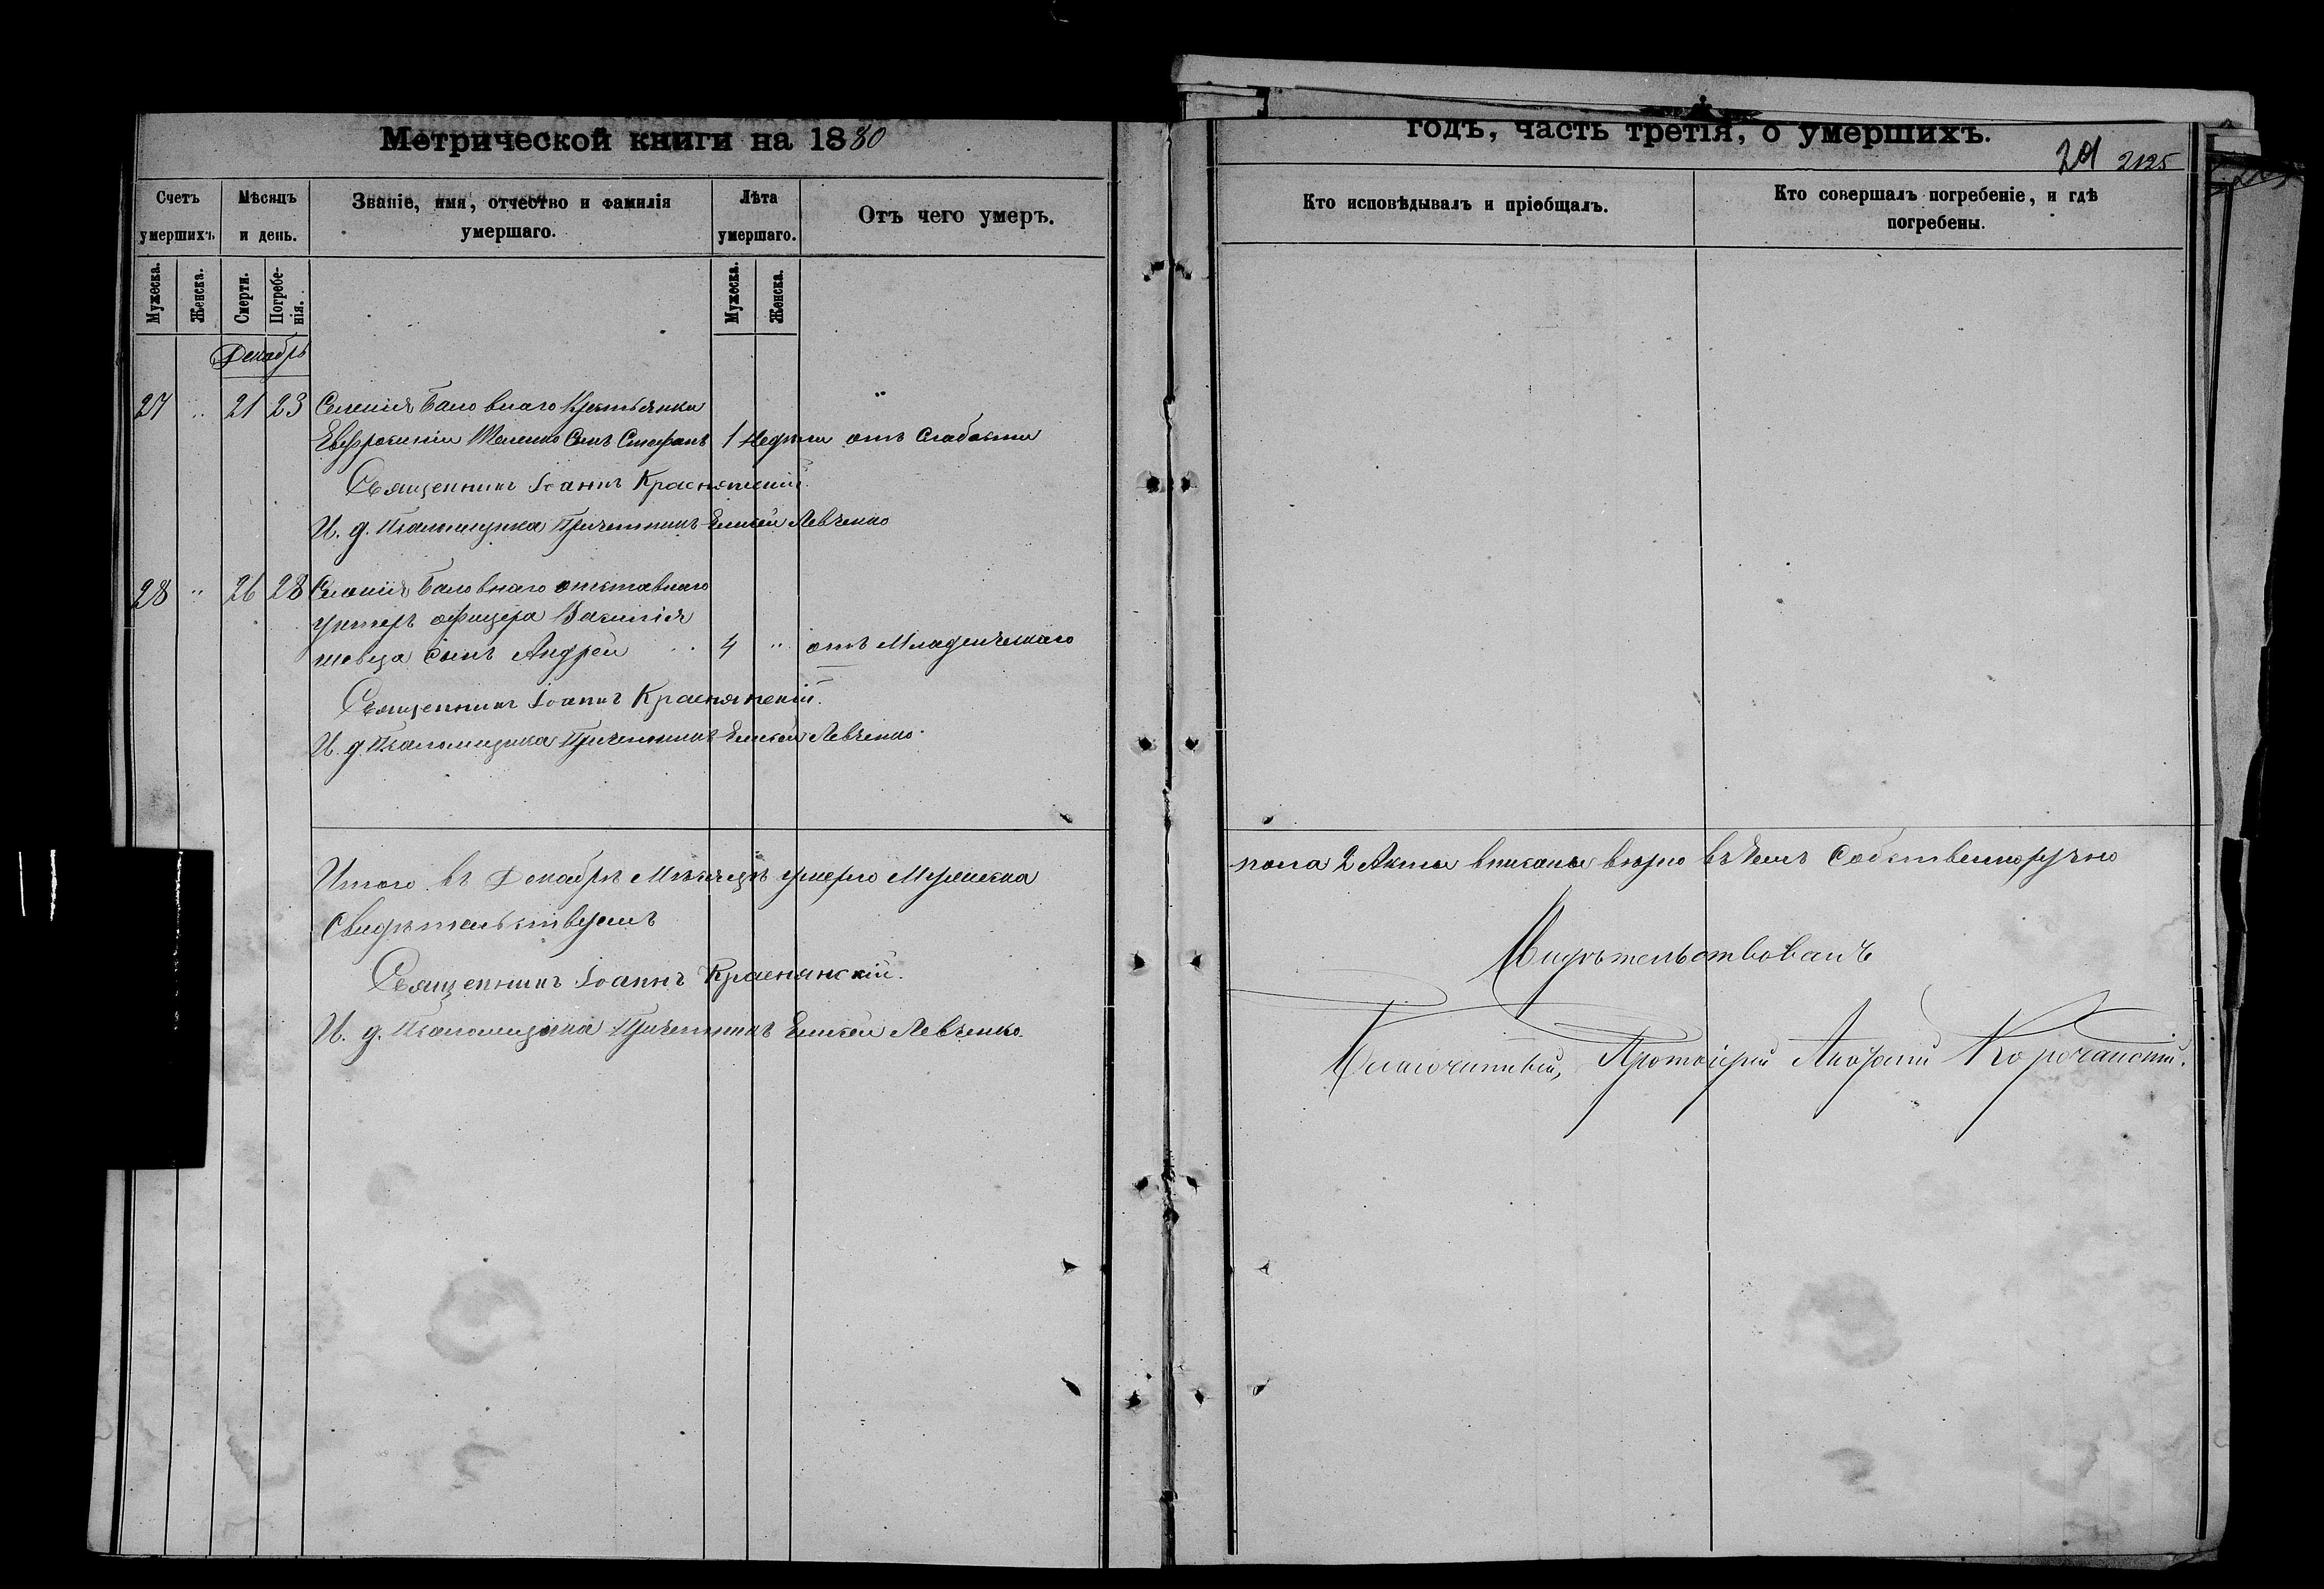 Метрической книги на 1880
годъ, часть третія, о умершихъ.
2125
Счетъ умершихъ
Мѣсяцъ и день.
Званіе, имя, отчество и фамилія умершаго.
Лѣта умершаго.
Отъ чего умеръ.
Кто исповѣдывалъ и пріобщалъ.
Кто совершалъ погребеніе, и гдѣ погребены.
Мужеска.
Женска.
Смерти.
Погребенія.
Мужеска.
Женска.
Декабрь
27 " 21 23 Селенія Баловнаго Крестьянки
Евфросиніи сынъ Стефанъ 1 недѣли отъ слабости
Священникъ Іоаннъ Краснянскій.
И. д. Псаломщика Причетникъ Елисей Левченко
28 " 26 28 Селенія Баловнаго отставнаго
унтеръ офицера Василія
шевца сынъ Андрей 4 " отъ Младенческаго
Священникъ Іоаннъ Краснянскій.
И. д. Псаломщика Причетникъ Елисей Левченко.
Итого въ Декабрѣ Мѣсяцѣ умерло Мужеска
пола 2 Акты вписаны вѣрно въ чемъ Собственноручно
Свидѣтельствуемъ
Священникъ Іоаннъ Краснянскій.
И. д. Псаломщика Причетникъ Елисей Левченко.
Свидѣтельствовалъ
Благочинный, Протоіерей Андрей Корочанскій.